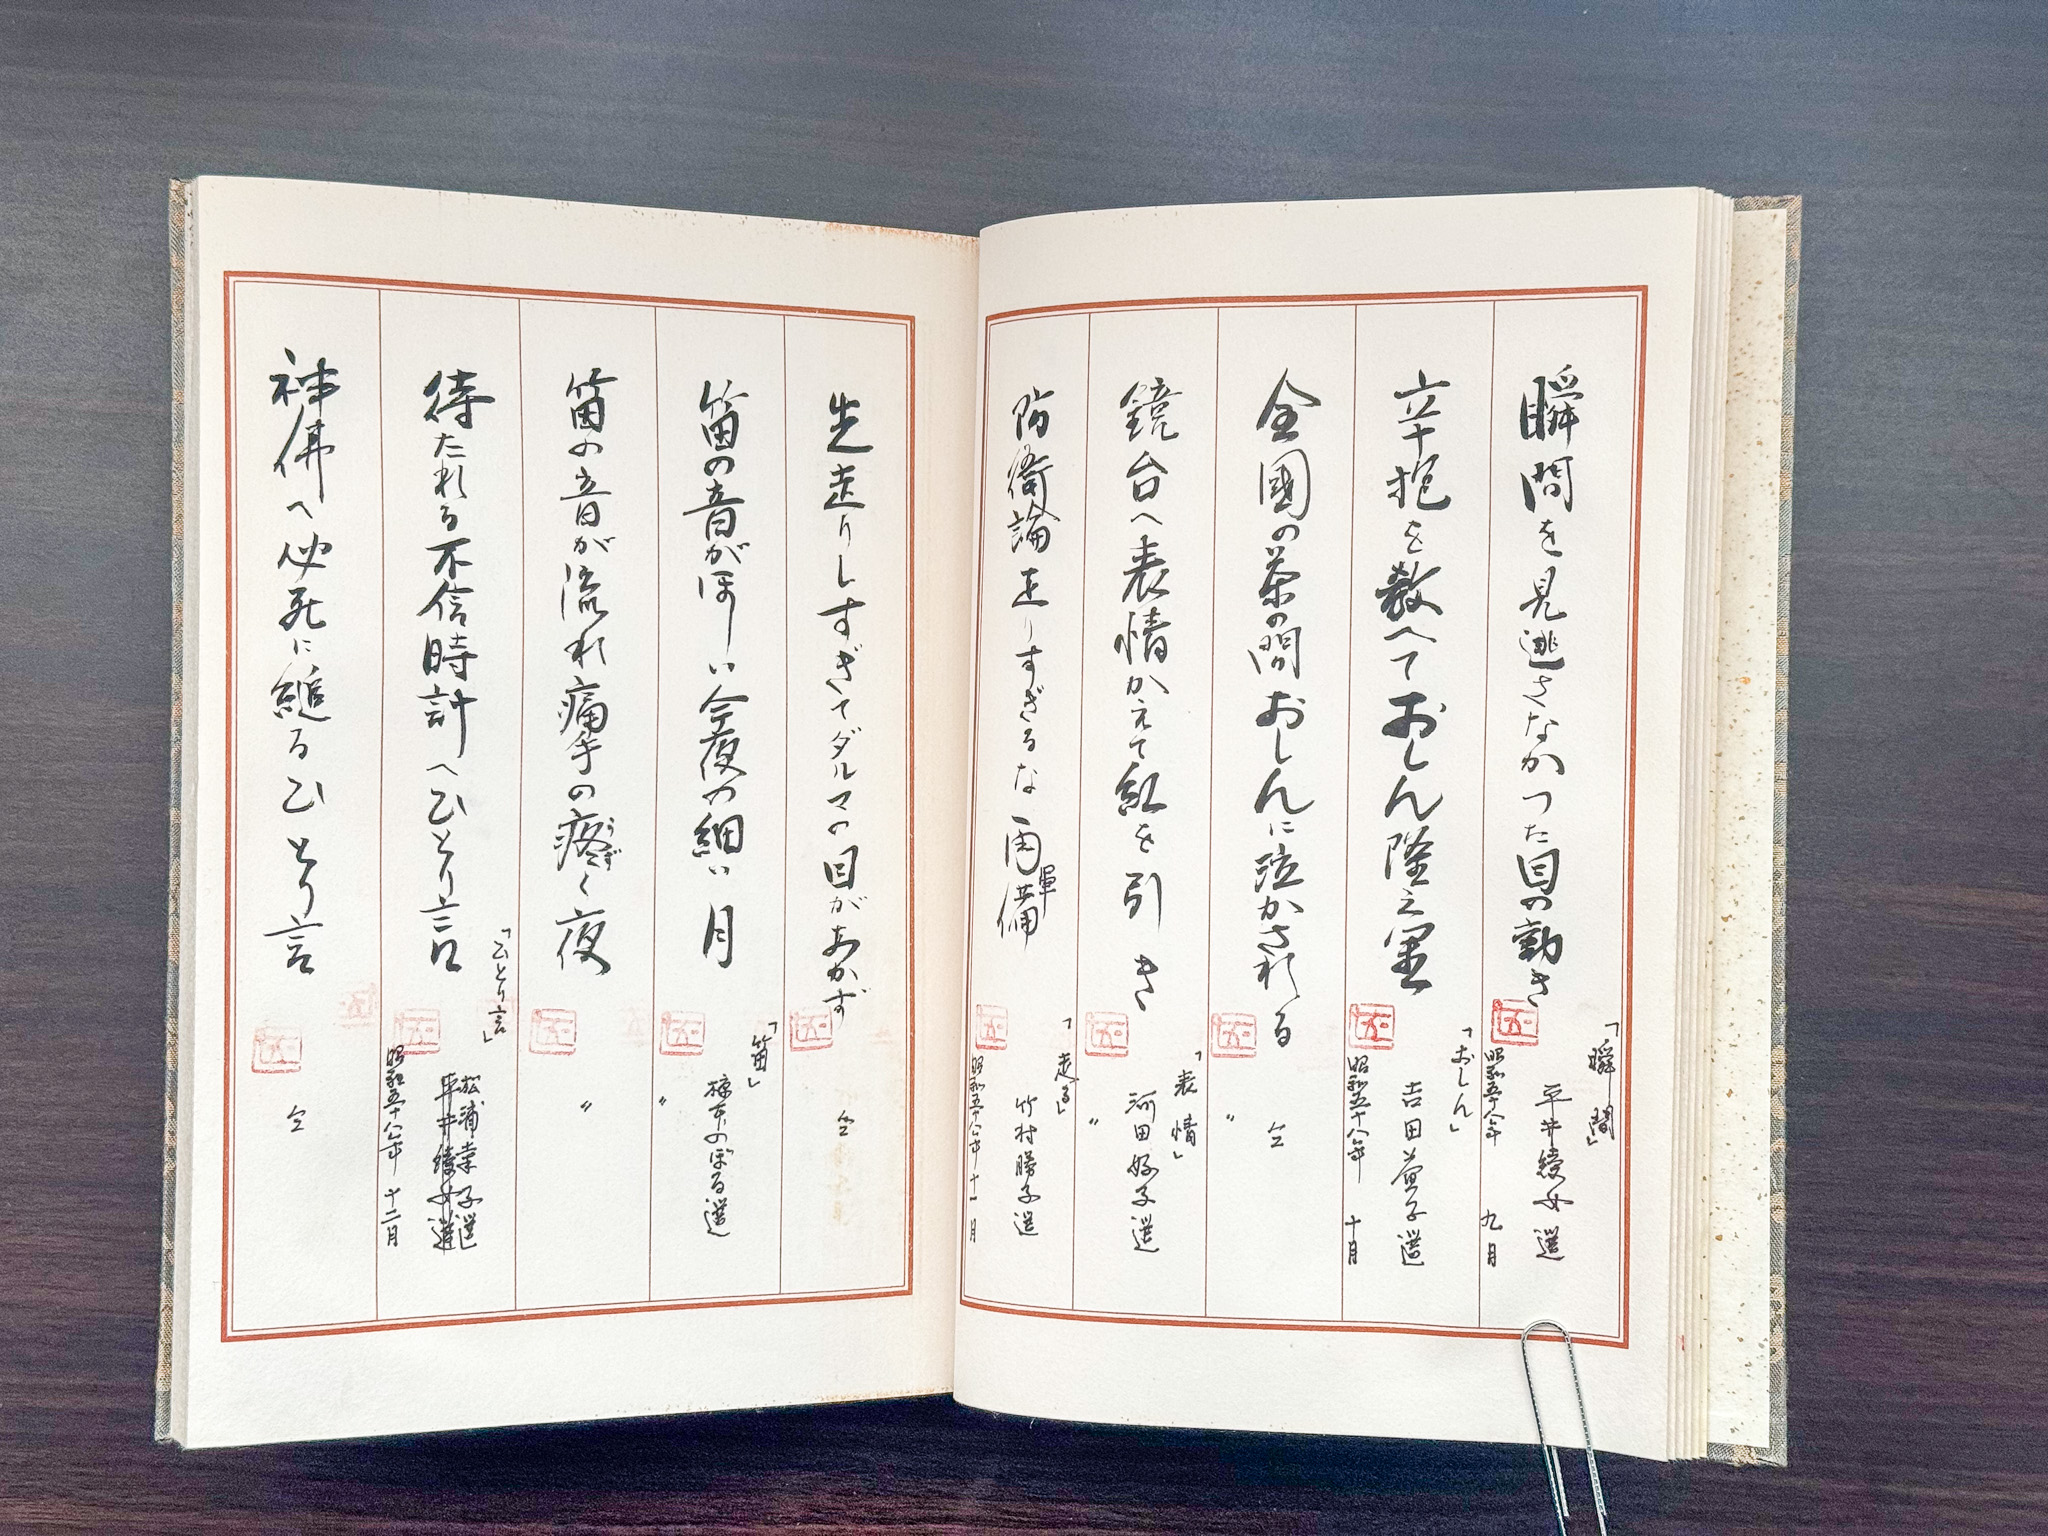 「瞬間」
瞬間を見逃さなかつた目の動き
平井綾女選
昭和五十八年 九月
「おしん」
辛抱を教へておしん陸之星
吉田益子選
昭和五十八年 十月
全國の茶の間おしんに泣かされる
仝
〃
「表情」
鏡台へ表情かえて紅を引き
河田好子選
〃
「走る」
防衛論走りすぎるな再軍備
竹村勝子選
昭和五十八年 十一月
先走りしすぎてダルマの目があかず
仝
「笛」
笛の音がほしい今夜の細い月
橋本のぼる選
〃
笛の音が流れ痛手の疼く夜
うず
〃
「ひとり言」
待たれる不信時計へひとり言
松浦幸子選
平井綾女選
昭和五十八年 十二月
神佛へ必死に縋るひとり言
仝